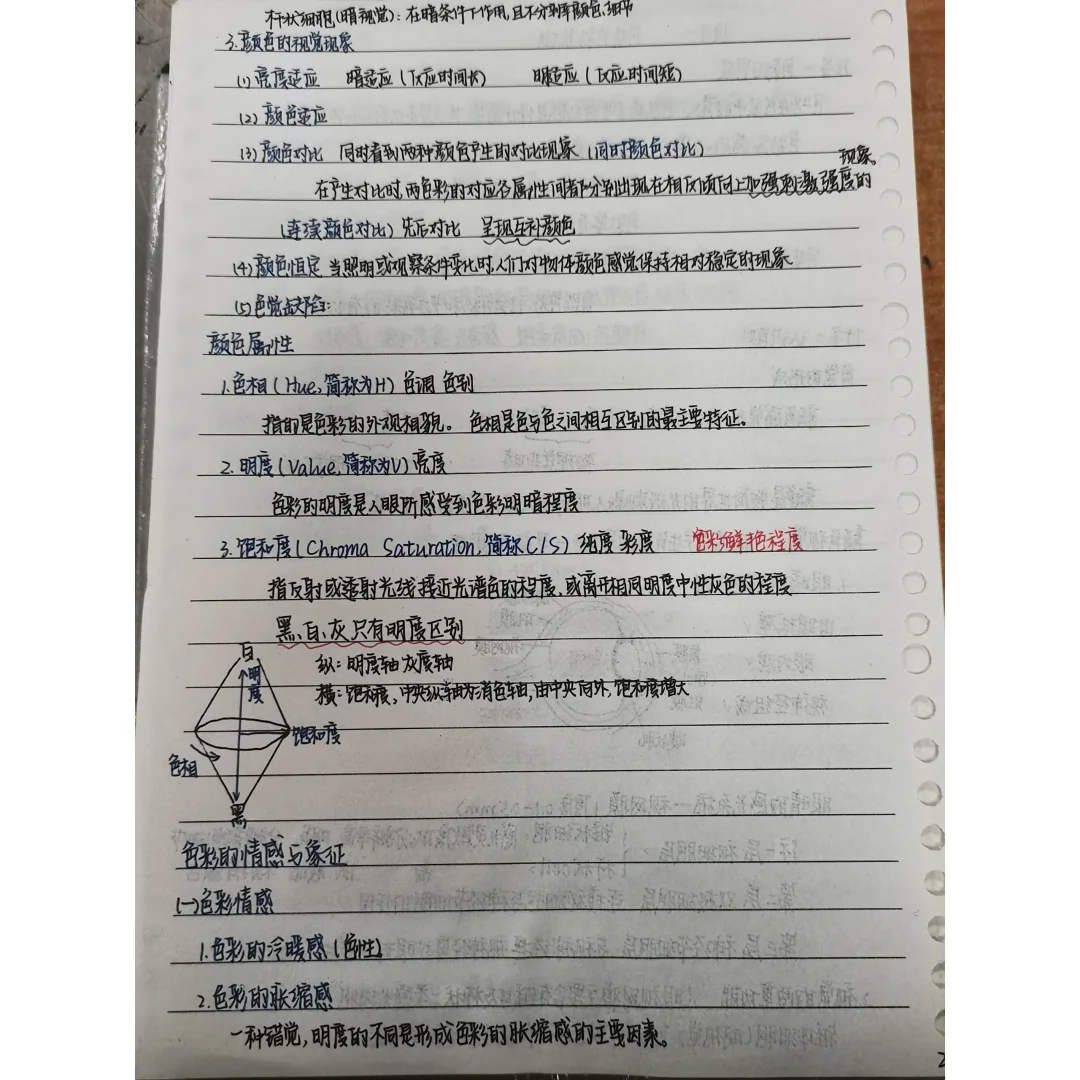 杆状细胞(暗视觉): 在暗条件下作用,且不分辨颜色,细节
3.颜色的视觉现象
(1)亮度适应 暗适应(反应时间长) 明适应(反应时间短)
(2)颜色适应
(3)颜色对比 同时看到两种颜色产生的对比现象(同时颜色对比)
在产生对比时,两色彩的对应各属性间都分别出现在相反倾向上加强刺激强度的现象。
(连续颜色对比)先后对比 呈现互补颜色
(4)颜色恒定 当照明或观察条件变化时,人们对物体颜色感觉保持相对稳定的现象
(5)色觉缺陷:
颜色属性
1.色相(Hue,简称为H)色调 色别
指的是色彩的外观相貌。 色相是色与色之间相互区别的最主要特征。
2.明度(Value,简称为V)亮度
色彩的明度是人眼所感受到色彩明暗程度
3.饱和度(Chroma Saturation,简称C/S) 纯度 彩度 色彩鲜艳程度
指反射或透射光线接近光谱色的程度,或离开相同明度中性灰色的程度
黑、白、灰只有明度区别
白
明度
纵: 明度轴 灰度轴
横: 饱和度,中央纵轴为消色轴,由中央向外,饱和度增大
饱和度
色相
黑
色彩的情感与象征
(一)色彩情感
1.色彩的冷暖感(色性)
2.色彩的胀缩感
一种错觉,明度的不同是形成色彩的胀缩感的主要因素。
2